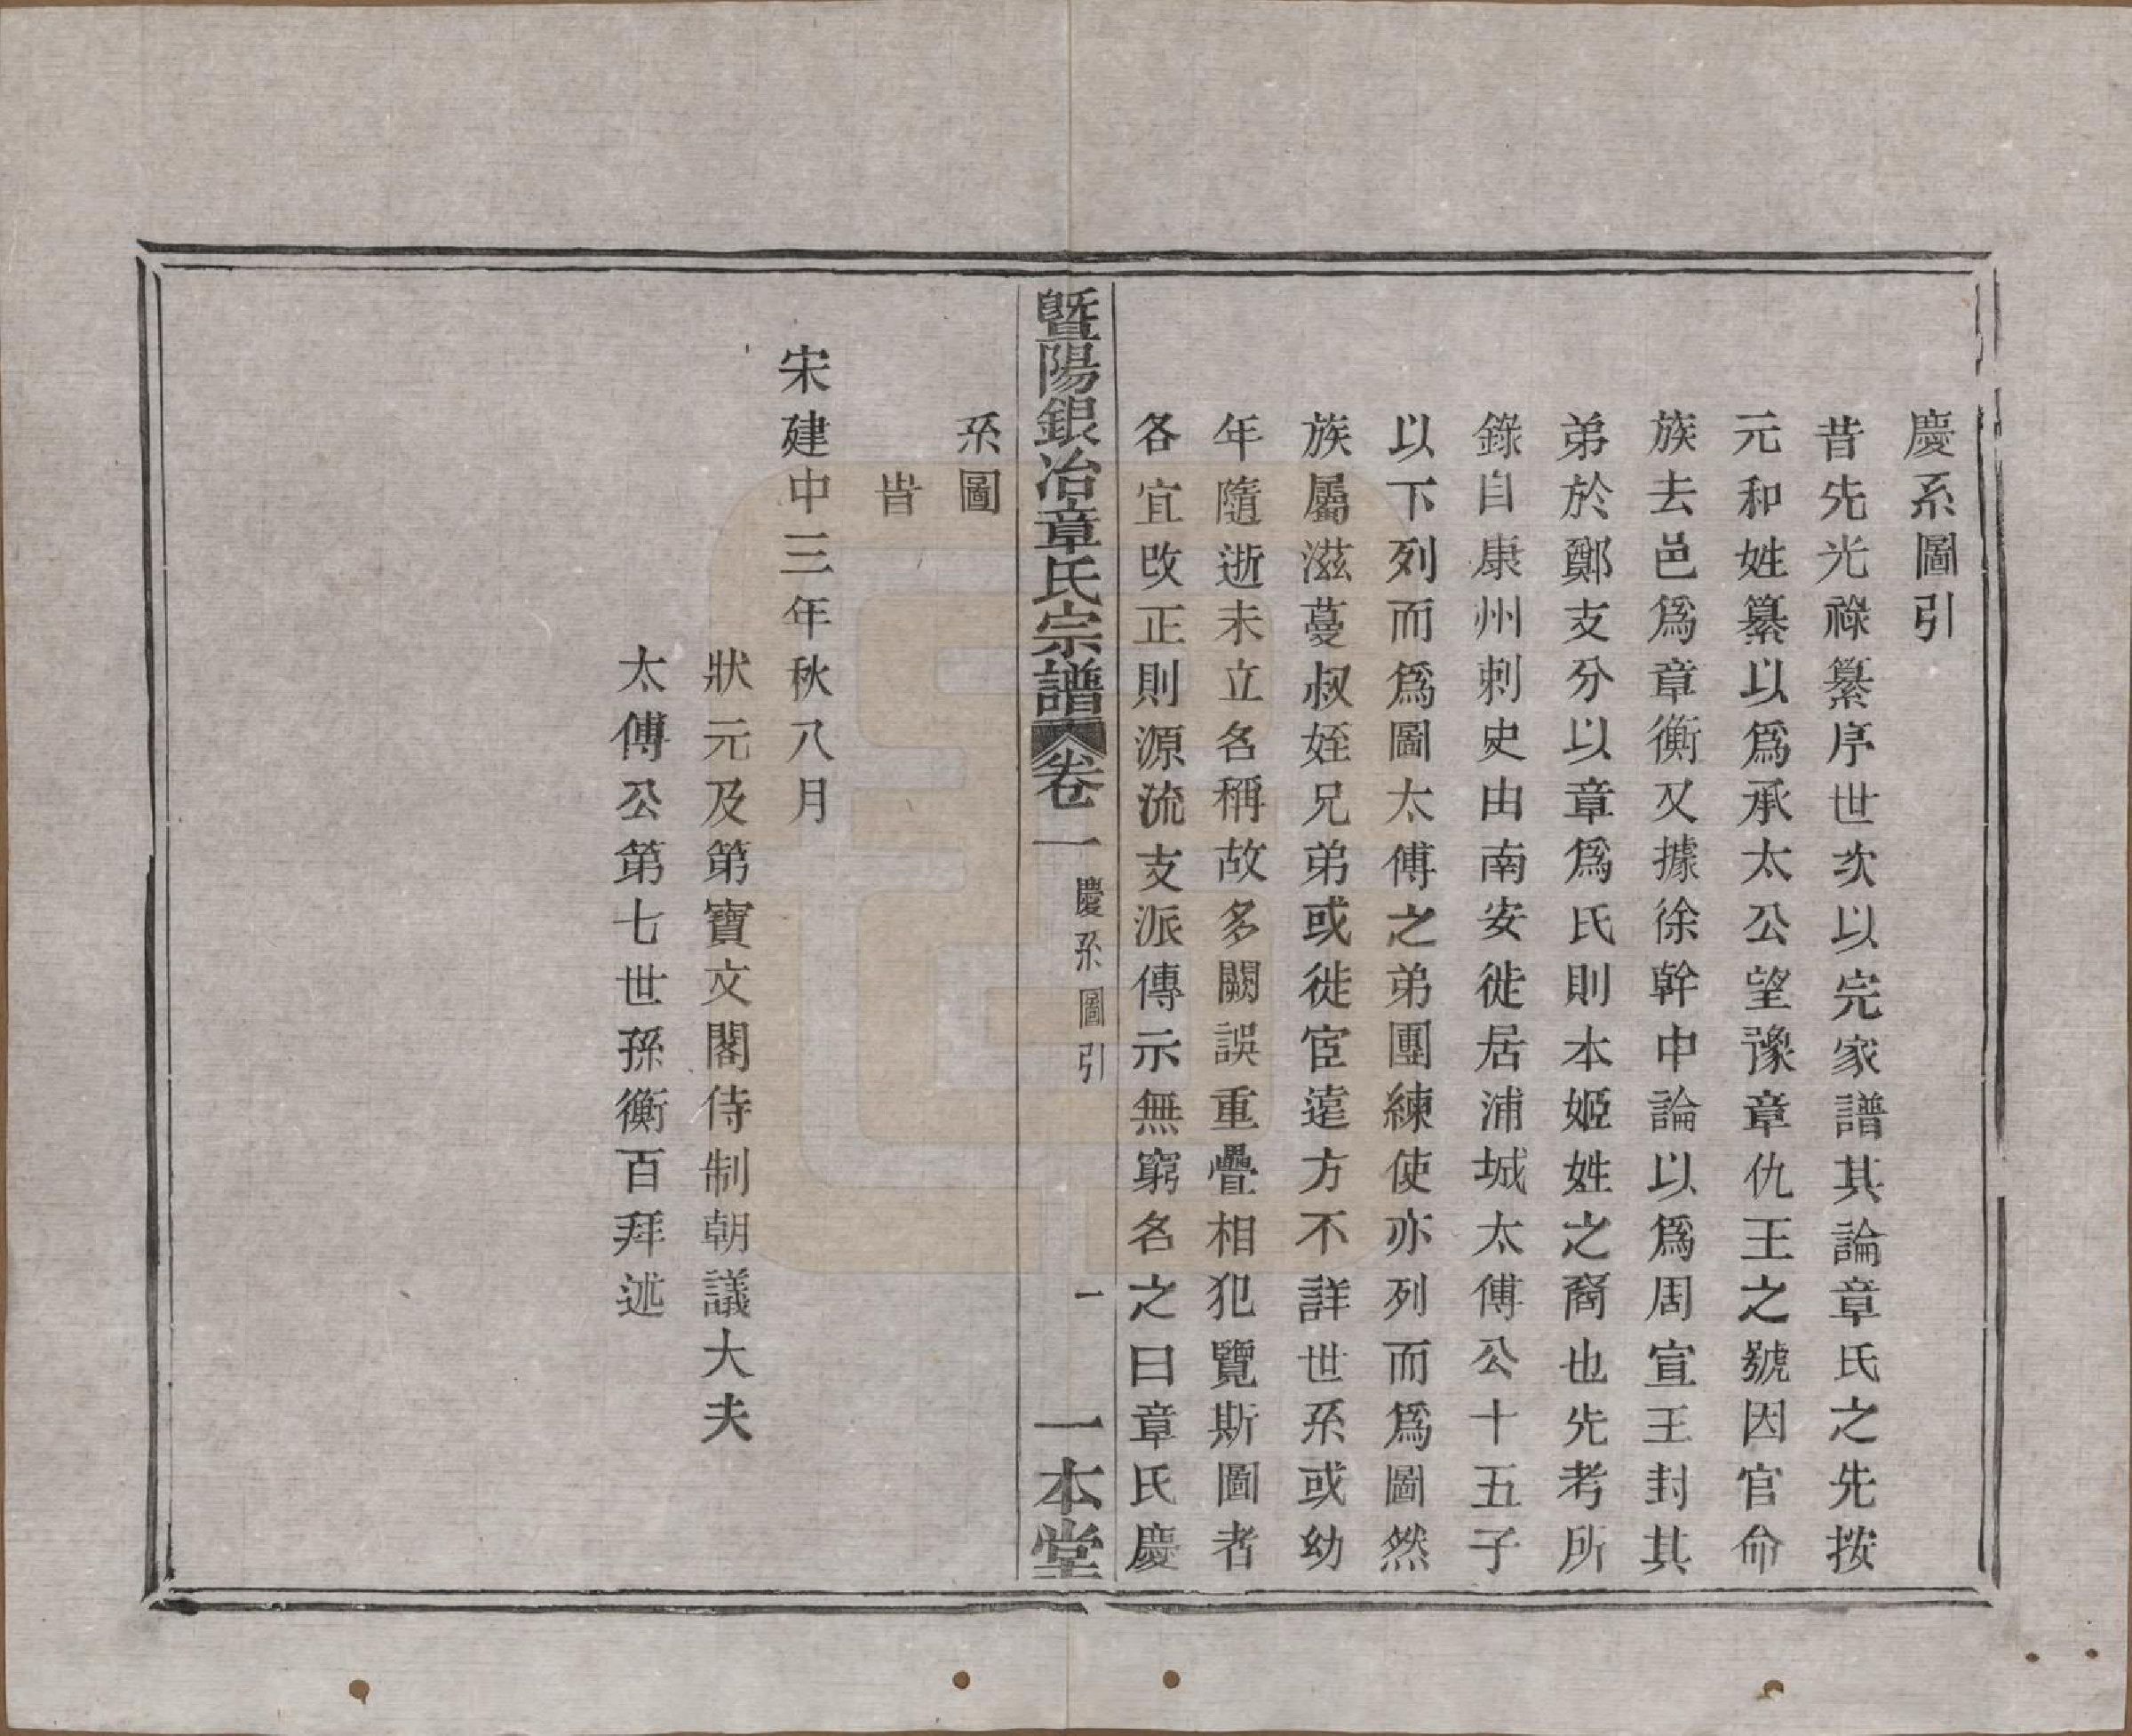 慶系圖引
昔先光祿纂序世次以完家譜其論章氏之先按
元和姓纂以爲承太公望豫章仇王之號因官命
族去邑爲章衡又據徐幹中論以爲周宣王封其
弟於鄭支分以章爲氏則本姬姓之裔也先考所
錄自康州刺史由南安徙居浦城太傅公十五子
以下列而爲圖太傅之弟團練使亦列而爲圖然
族屬滋蔓叔姪兄弟或徙宦遠方不詳世系或幼
年隨逝未立名稱故多闕誤重疊相犯覽斯圖者
各宜改正則源流支派傳示無窮名之曰章氏慶
暨陽銀冶章氏宗譜 卷一 慶系圖引 一 一本堂
系圖
旹
宋建中三年秋八月
狀元及第寶文閣侍制朝議大夫
太傅公第七世孫衡百拜述